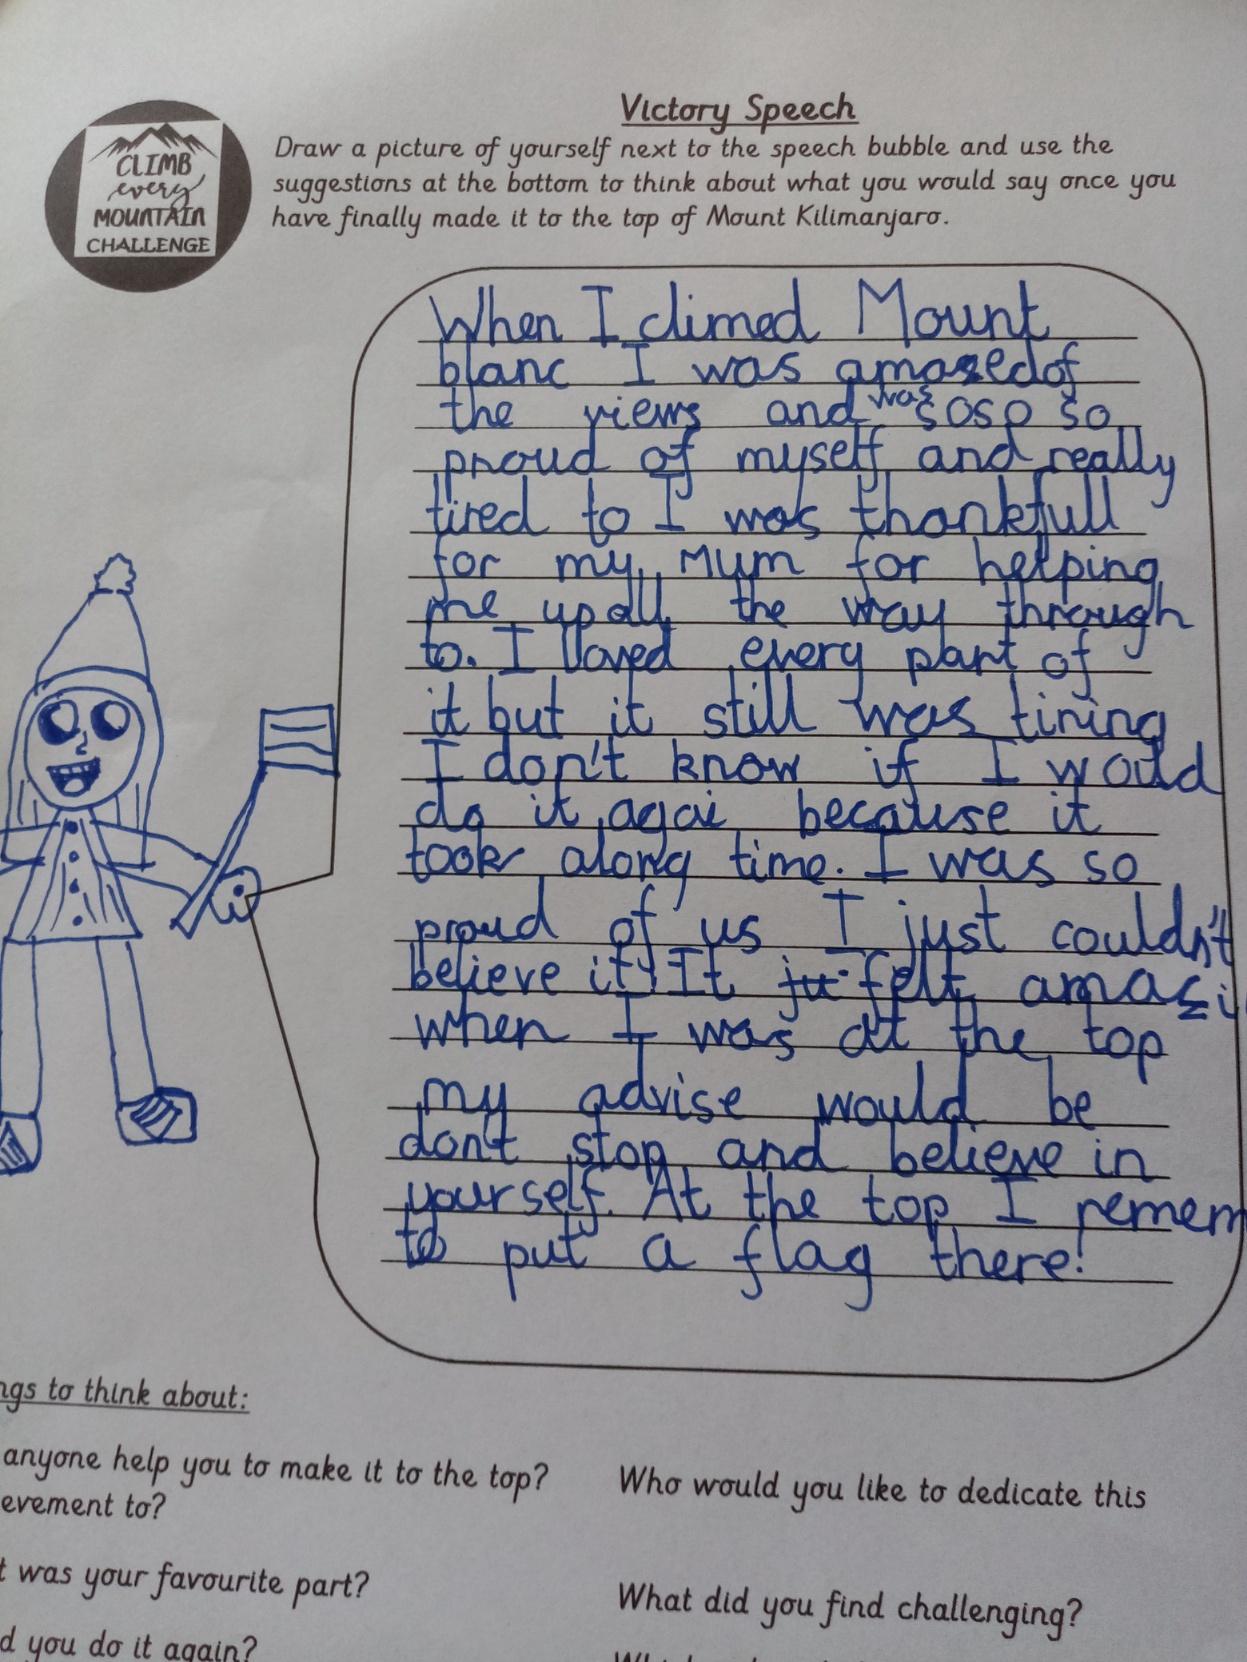 Victory Speech
CLIMB
every
MOUNTAIN
CHALLENGE
Draw a picture of yourself next to the speech bubble and use the
suggestions at the bottom to think about what you would say once you
have finally made it to the top of Mount Kilimanjaro.
When I climed Mount
blanc I was amazed of
the views and was so so so
proud of myself and really
tired to I was thankfull
for my Mum for helping
me up all the way through
to. I loved every part of
it but it still was tiring
I don't know if I would
do it agai because it
took along time. I was so
proud of us I just couldn't
believe it! It felt amazi
when I was at the top
my advise would be
don't stop and believe in
yourself. At the top I remem
to put a flag there!
ngs to think about:
anyone help you to make it to the top?
Who would you like to dedicate this
evement to?
t was your favourite part?
What did you find challenging?
d you do it again?